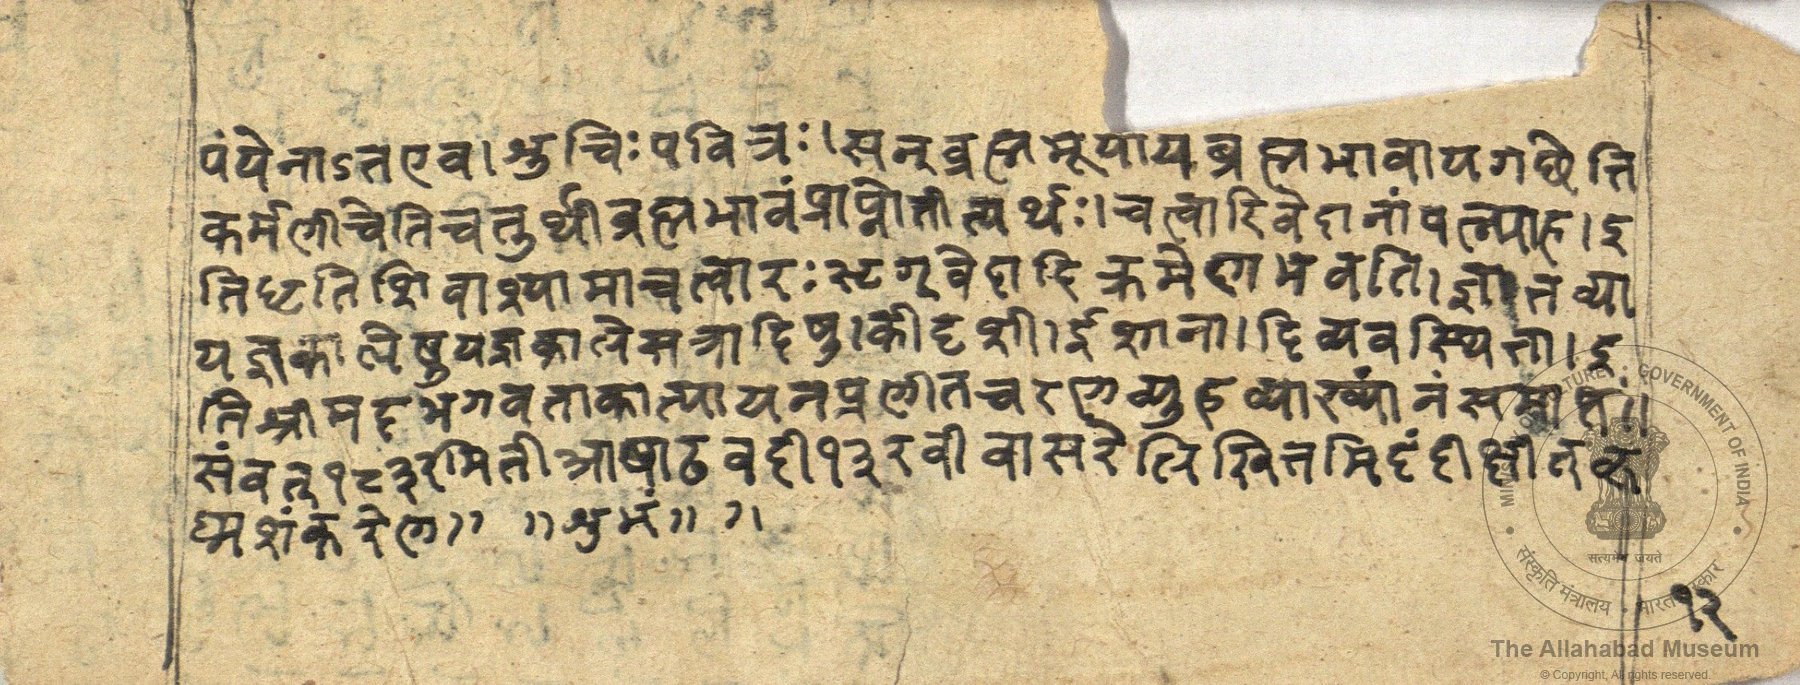 पंयेनाऽतएव।शुचिःपवित्रः।सन्ब्रह्मभूयायब्रह्मभावायगछेत्ति
कर्मणीचेतिचतुर्थीब्रह्मभावंप्राप्नोतीत्यर्थः।चत्वारिवेदानांपत्न्याह।इ
तिधृतिशिवाश्यामाचत्वारःऋग्वेदादिक्रमेणभवति।ज्ञातव्या
यज्ञकालेषुयज्ञकालेसत्रादिषु।कीदृशी।ईशाना।दिव्यवस्थिता।इ
तिश्रीमद्भगवताकात्यायनप्रणीतचरणव्युहव्याख्यांनंसमाप्तं॥
संवत्१८३२मितीआषाढवदी१३रवीवासरेलिखितमिदंदीक्षीत
शंकरेण॥ ॥शुभं॥ ॥
१२
MINISTRY OF CULTURE, GOVERNMENT OF INDIA
सत्यमेव जयते
संस्कृति मंत्रालय भारत सरकार
The Allahabad Museum
© Copyright, All rights reserved.